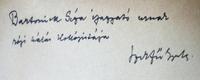 Bartoniek Géza igazgató urnak
régi hálás
Szekfű Gyula